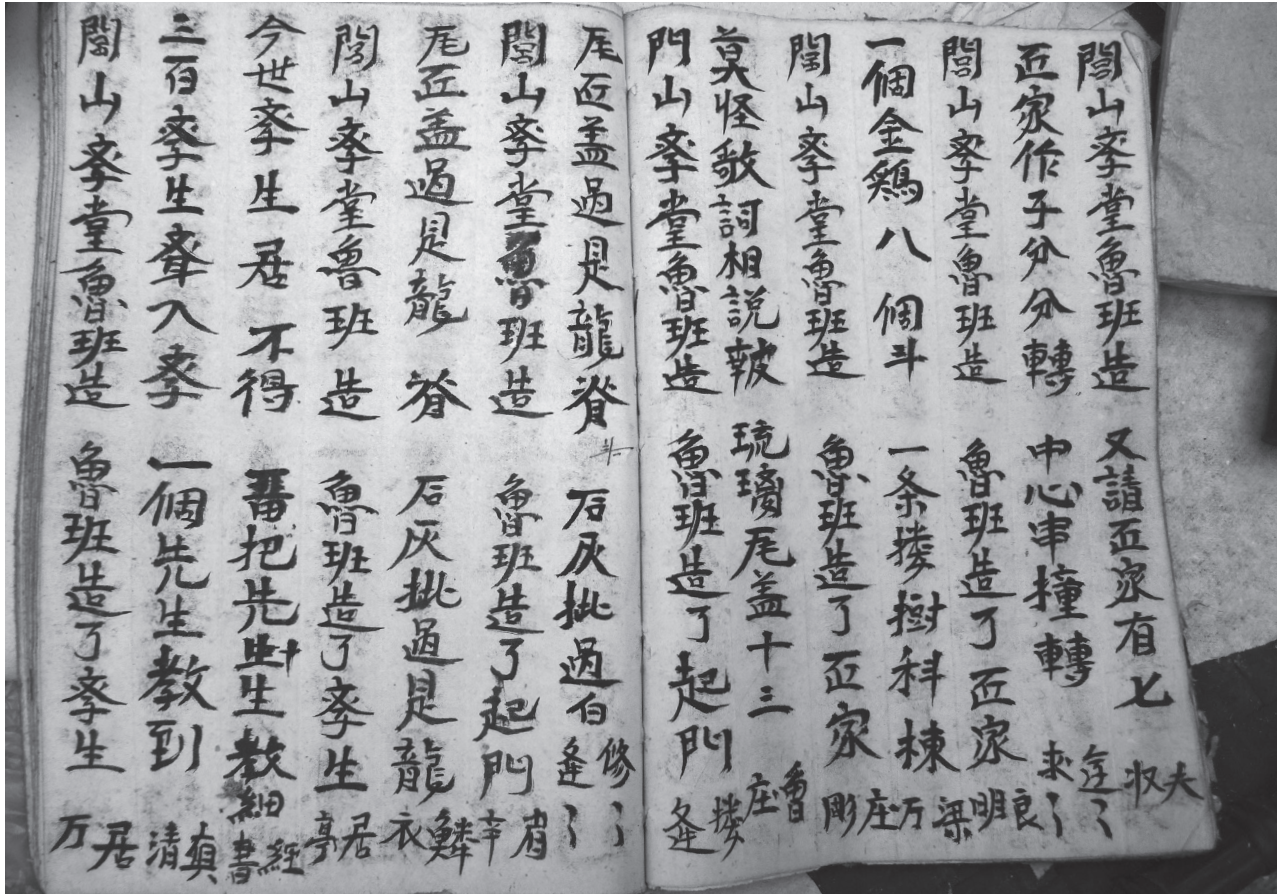 閭山斈堂魯班造 又請匠家有七夫収
匠家作子分分轉 中心串撞轉
閭山斈堂魯班造 魯班造了匠家明良梁
一個金鷄八個斗 一条楼樹科棟庄万
閭山斈堂魯班造 魯班造了匠家彫
莫怪歌詞相説皷 琉璃瓦盖十三魯庄
門山斈堂魯班造 魯班造了起門楼逢
瓦匠盖過是龍脊 石灰批過白修〻逢〻
閭山斈堂魯班造 魯班造了起門省辛
瓦匠盖過是龍脊 石灰批過是龍鱗衣
閭山斈堂魯班造 魯班造了斈生居亭
今世斈生居不得 畨把先生教細經書
三百斈生斉入斈 一個先生教到真清
閭山斈堂魯班造 魯班造了斈生居万